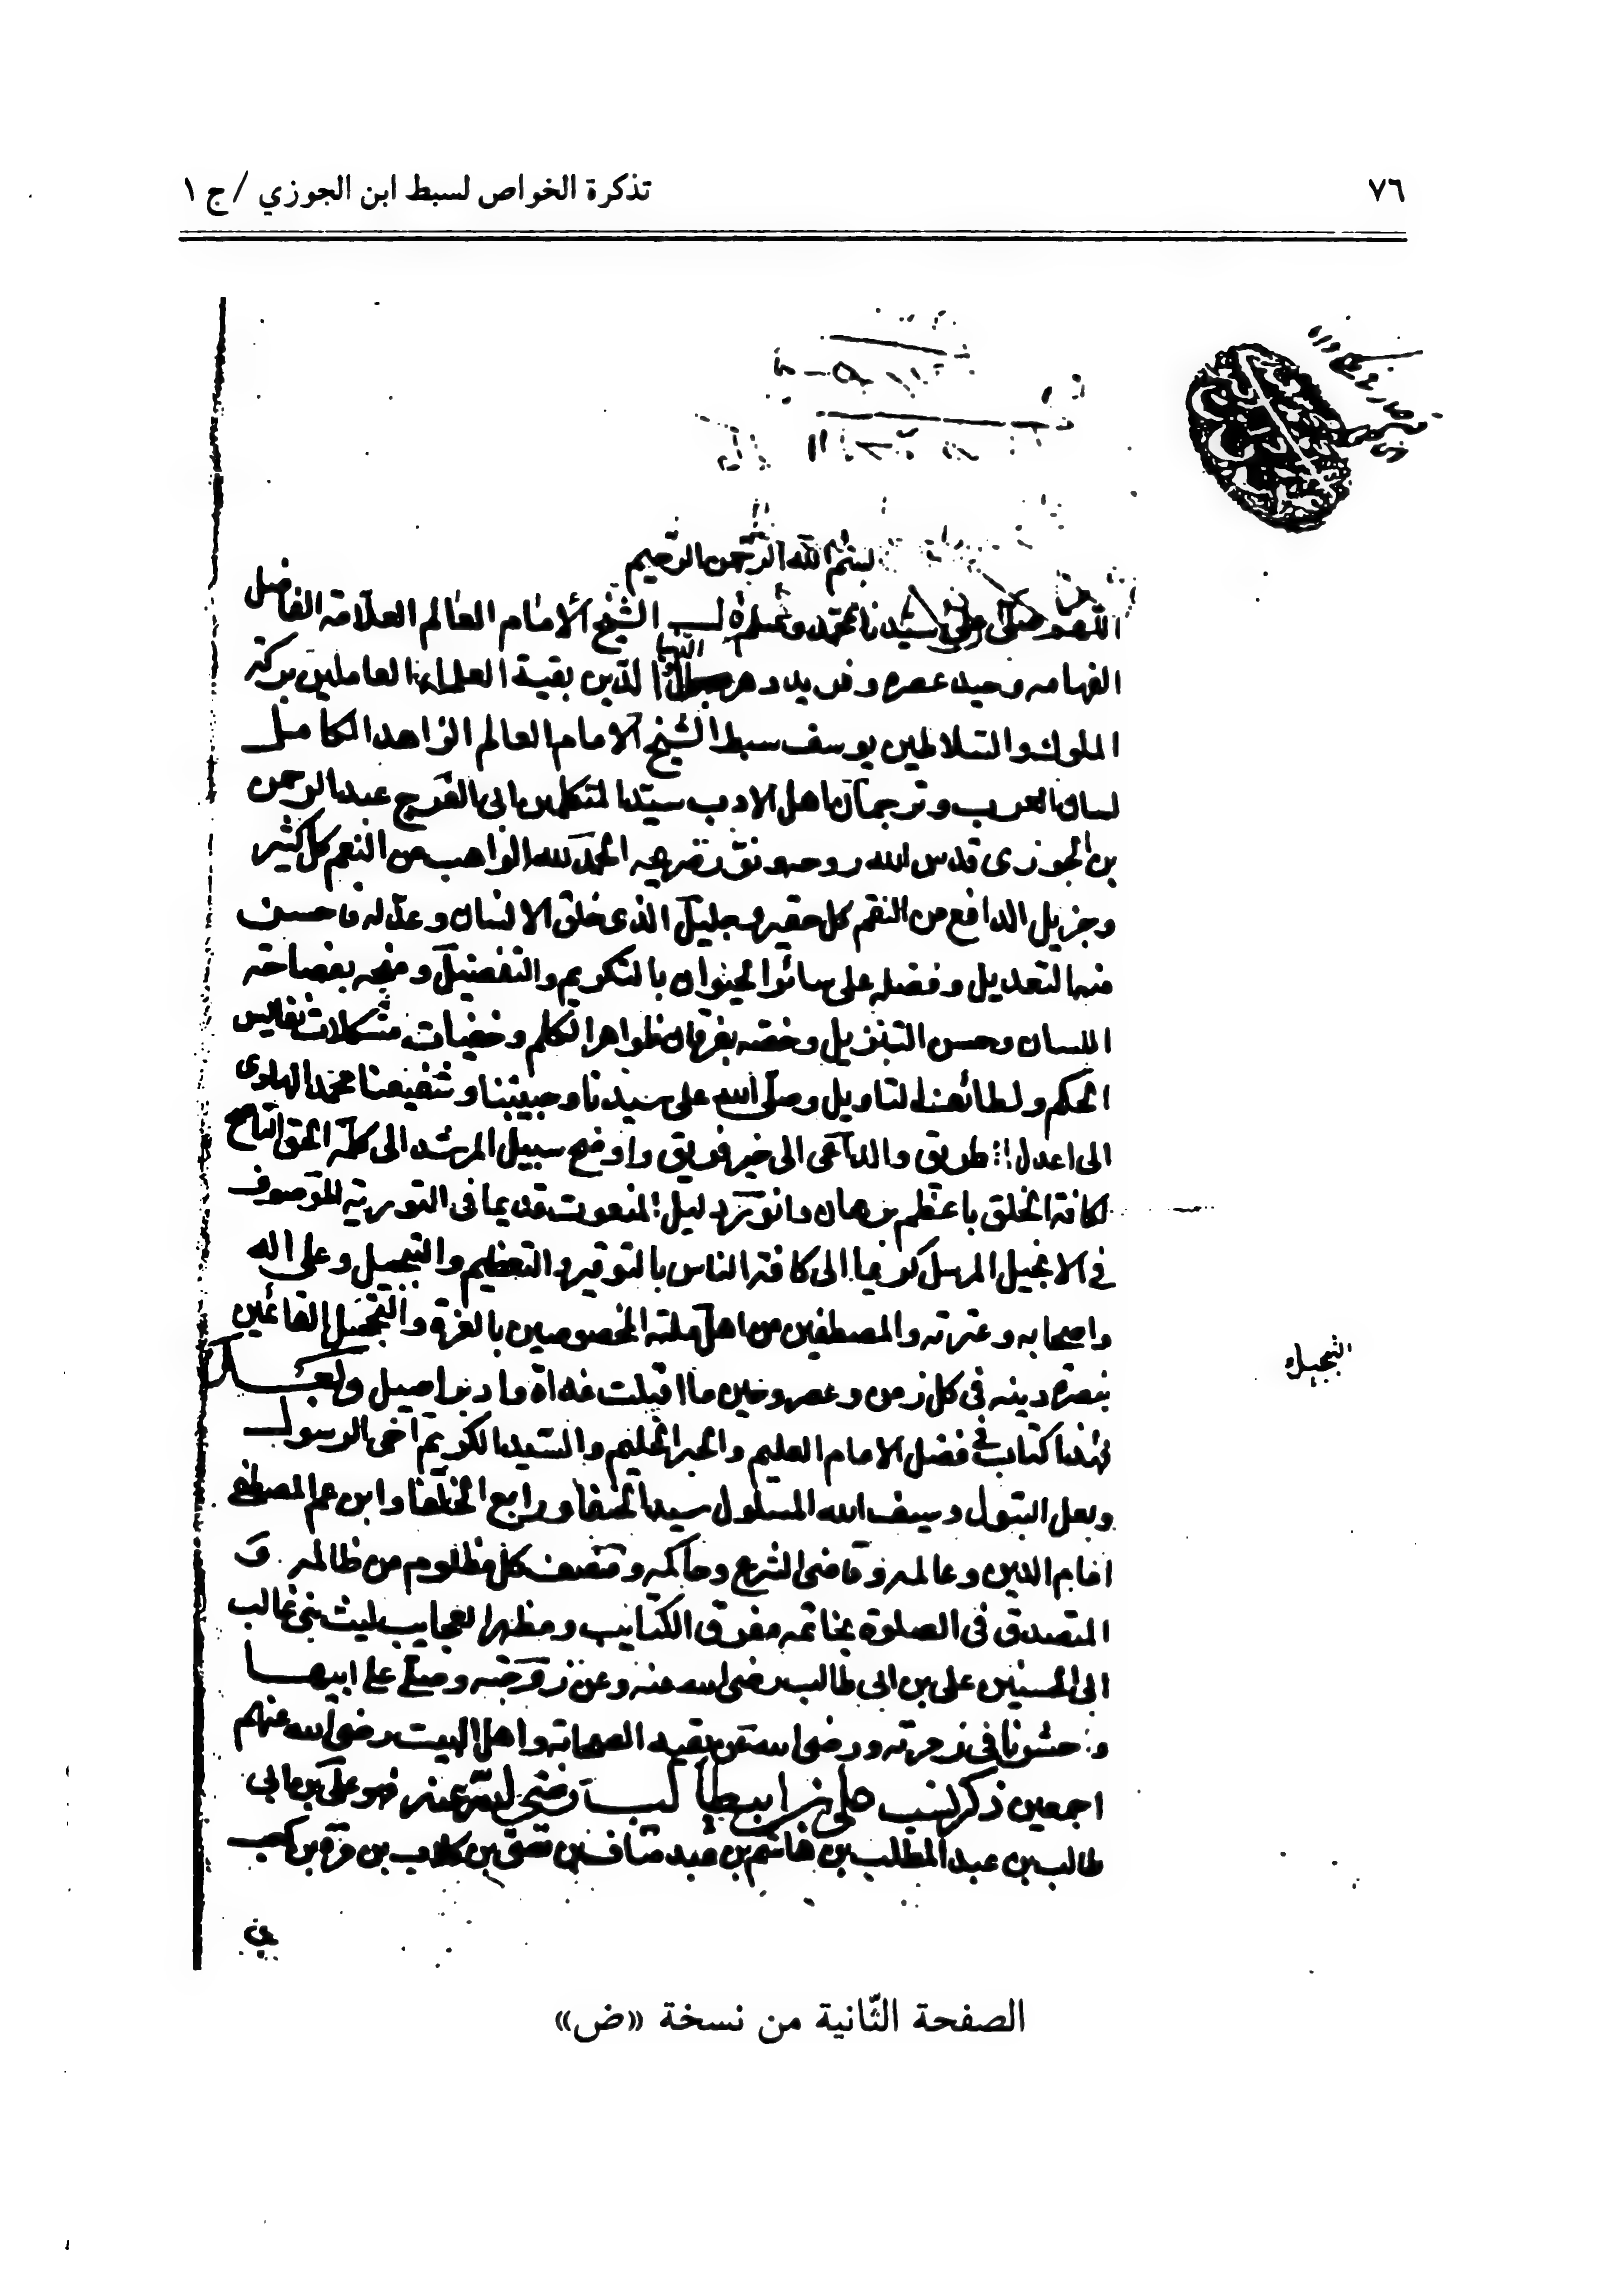 ٧٦
تذكرة الخواص لسبط ابن الجوزي / ج ١
بسم الله الرحمن الرحيم
اللهم صلى على سيدنا محمد وعلى الشيخ الامام العالم العلامة الفاضل
الفهامه وحيد عصره وفريد دهره الدين بقية العلماء العاملين بركة
الملوك والسلاطين يوسف سبط الشيخ الامام العالم الزاهد الكامل
لسان العرب وترجمان اهل الادب سيد المتكلمين ابى الفرج عبد الرحمن
بن الجوزى قدس الله روحه ونور ضريحه الحمد لله الواهب من النعم كل كثير
وجزيل الدافع من النقم كل حقير وجليل الذى خلق الانسان وعدله فاحسن
منه التعديل وفضله على سائر الحيوان بالتكريم والتفضيل ومنحه بفصاحة
اللسان وحسن التنزيل وخصه بفرقان ظواهر الكلم وخفيات مشكلات نفايس
الحكم ولطائف التاويل وصلى الله على سيدنا وحبيبنا وشفيعنا محمد الهادى
الى اعدل طريق والداعى الى خير فريق واوضح سبيل المرشد الى كلمة الحق الناصح
لكافة الخلق باعظم برهان وانور دليل المنعوت قديما فى التورية الموصوف
فى الانجيل المرسل كريما الى كافة الناس بالتوقير والتعظيم والتبجيل وعلى اله
واصحابه وعترته والمصطفين من اهل ملته المخصوصين بالغرة والتحجيل القائمين
التبجيل
بنصرة دينه فى كل زمن وعصر وحين ما اقبلت غداة وادبر اصيل وبعد
فهذا كتاب فى فضل الامام العليم والحبر الحليم والسيد الكريم اخى الرسول
وبعل البتول وسيف الله المسلول سيد الحنفا ورابع الخلفا وابن عم المصطفى
امام الدين وعالمه وقاضى الشرع وحاكمه ومنصف كل مظلوم من ظالمه و
المتصدق فى الصلوة بخاتمه مفرق الكتايب ومظهر العجايب ليث بنى غالب
ابى الحسنين على بن ابى طالب رضى الله عنه وعن زوجته وصلى على ابيها
وحشرنا فى زمرته ورضى الله عن بقية الصحابة واهل البيت رضى الله عنهم
اجمعين ذكر نسب على بن ابيطالب رضى الله عنه فهو على بن ابى
طالب بن عبد المطلب بن هاشم بن عبد مناف بن قصى بن كلاب بن مرة بن كعب
بن
الصفحة الثّانية من نسخة «ض»